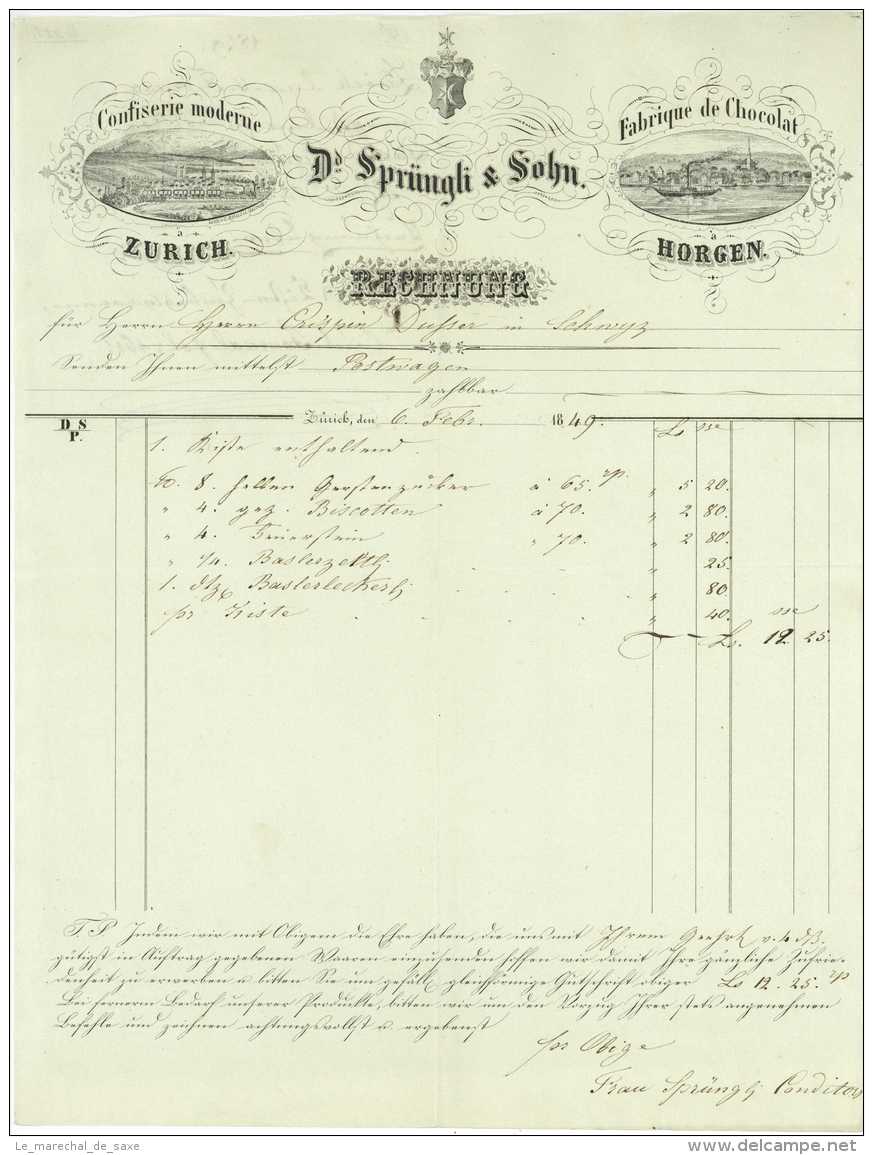 Confiserie moderne
à
ZURICH.
Dd. Sprüngli & Sohn.
Fabrique de Chocolat
à
HORGEN.
RECHNUNG
für Herrn Herrn Crispin Dusser in Schwyz
Senden Ihnen mittelst Postwagen
zahlbar
D S
P.
Zürich, den 6. Febr. 1849.
1. Kiste enthaltend.
8. hellen Gerstenzucker à 65. rp. " 5 20.
" 4. gez. Biscotten à 70. " 2 80.
" 4. Feuerstein " 70. " 2 80.
" 1/4. Baslerzeltlj " 25.
1. dtz Baslerleckerlj " 80.
pr Kiste " 40.
12. 25.
T. P Indem wir mit Obigem die Ehre haben, die uns mit Ihrem Geehrt v. 4 dß.
gütigst in Auftrag gegebenen Waaren einzusenden hoffen wir damit Ihre gänzliche Zufrie-
denheit zu erwerben u bitten Sie um gefäll gleichförmige Gutschrift obiger 12. 25. rp
Bei fernerm Bedarf unserer Produkte, bitten wir um den Vorzug Ihrer stets angenehmen
Befehle und zeichnen achtungsvollst u. ergebenst
pr Obige
Frau Sprünglj Conditor
Le_marechal_de_saxe
delcampe.net